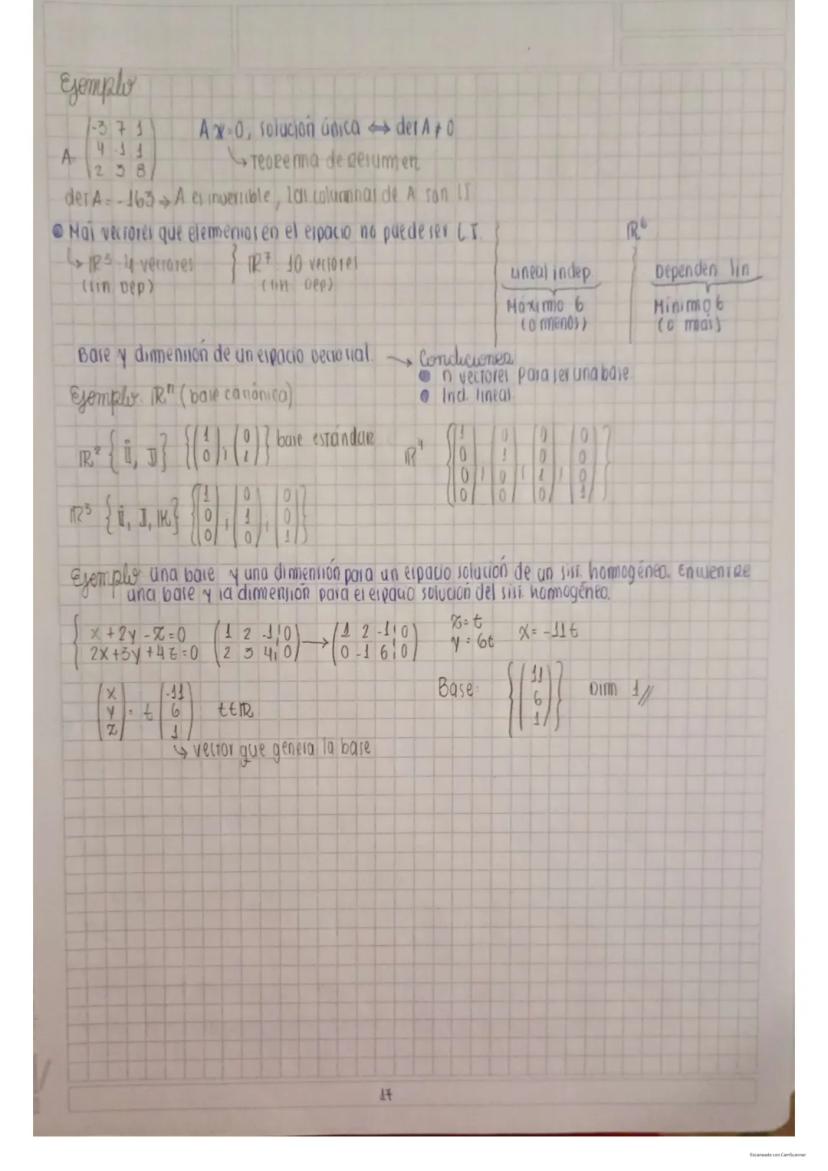 Ejemplo
A = (-3 7 1 / 4 -1 1 / 2 3 8)
Ax=0, solución única ⟺ det A ≠ 0
↳ Teorema de resumen
det A = -163 → A es invertible, las columnas de A son LI
• Mas vectores que elementos en el espacio no puede ser LI.
↳ ℝ³ 4 vectores } ℝ⁷ 10 vectores
(lin Dep) (lin Dep)
ℝ⁶
Lineal indep
Máximo 6
(o menos)
Dependen lin
Mínimo 6
(o mas)
Base y dimensión de un espacio vectorial. → Condiciones
• n vectores para ser una base
• Ind. lineal.
Ejemplo. ℝⁿ (base canónica)
ℝ² {i, j} {(1 / 0), (0 / 1)} base estándar
ℝ⁴ {(1 / 0 / 0 / 0), (0 / 1 / 0 / 0), (0 / 0 / 1 / 0), (0 / 0 / 0 / 1)}
ℝ³ {i, j, k} {(1 / 0 / 0), (0 / 1 / 0), (0 / 0 / 1)}
Ejemplo una base y una dimensión para un espacio solución de un sist. homogéneo. Encuentre
una base y la dimensión para el espacio solución del sist. homogéneo.
{ x+2y-z=0 / 2x+3y+4z=0 (1 2 -1 | 0 / 2 3 4 | 0) → (1 2 -1 | 0 / 0 -1 6 | 0)
z=t
y=6t x=-11t
(x / y / z) = t (-11 / 6 / 1) t∈ℝ
↳ vector que genera la base
Base: {(11 / 6 / 1)} Dim 1 //
17
Escaneado con CamScanner